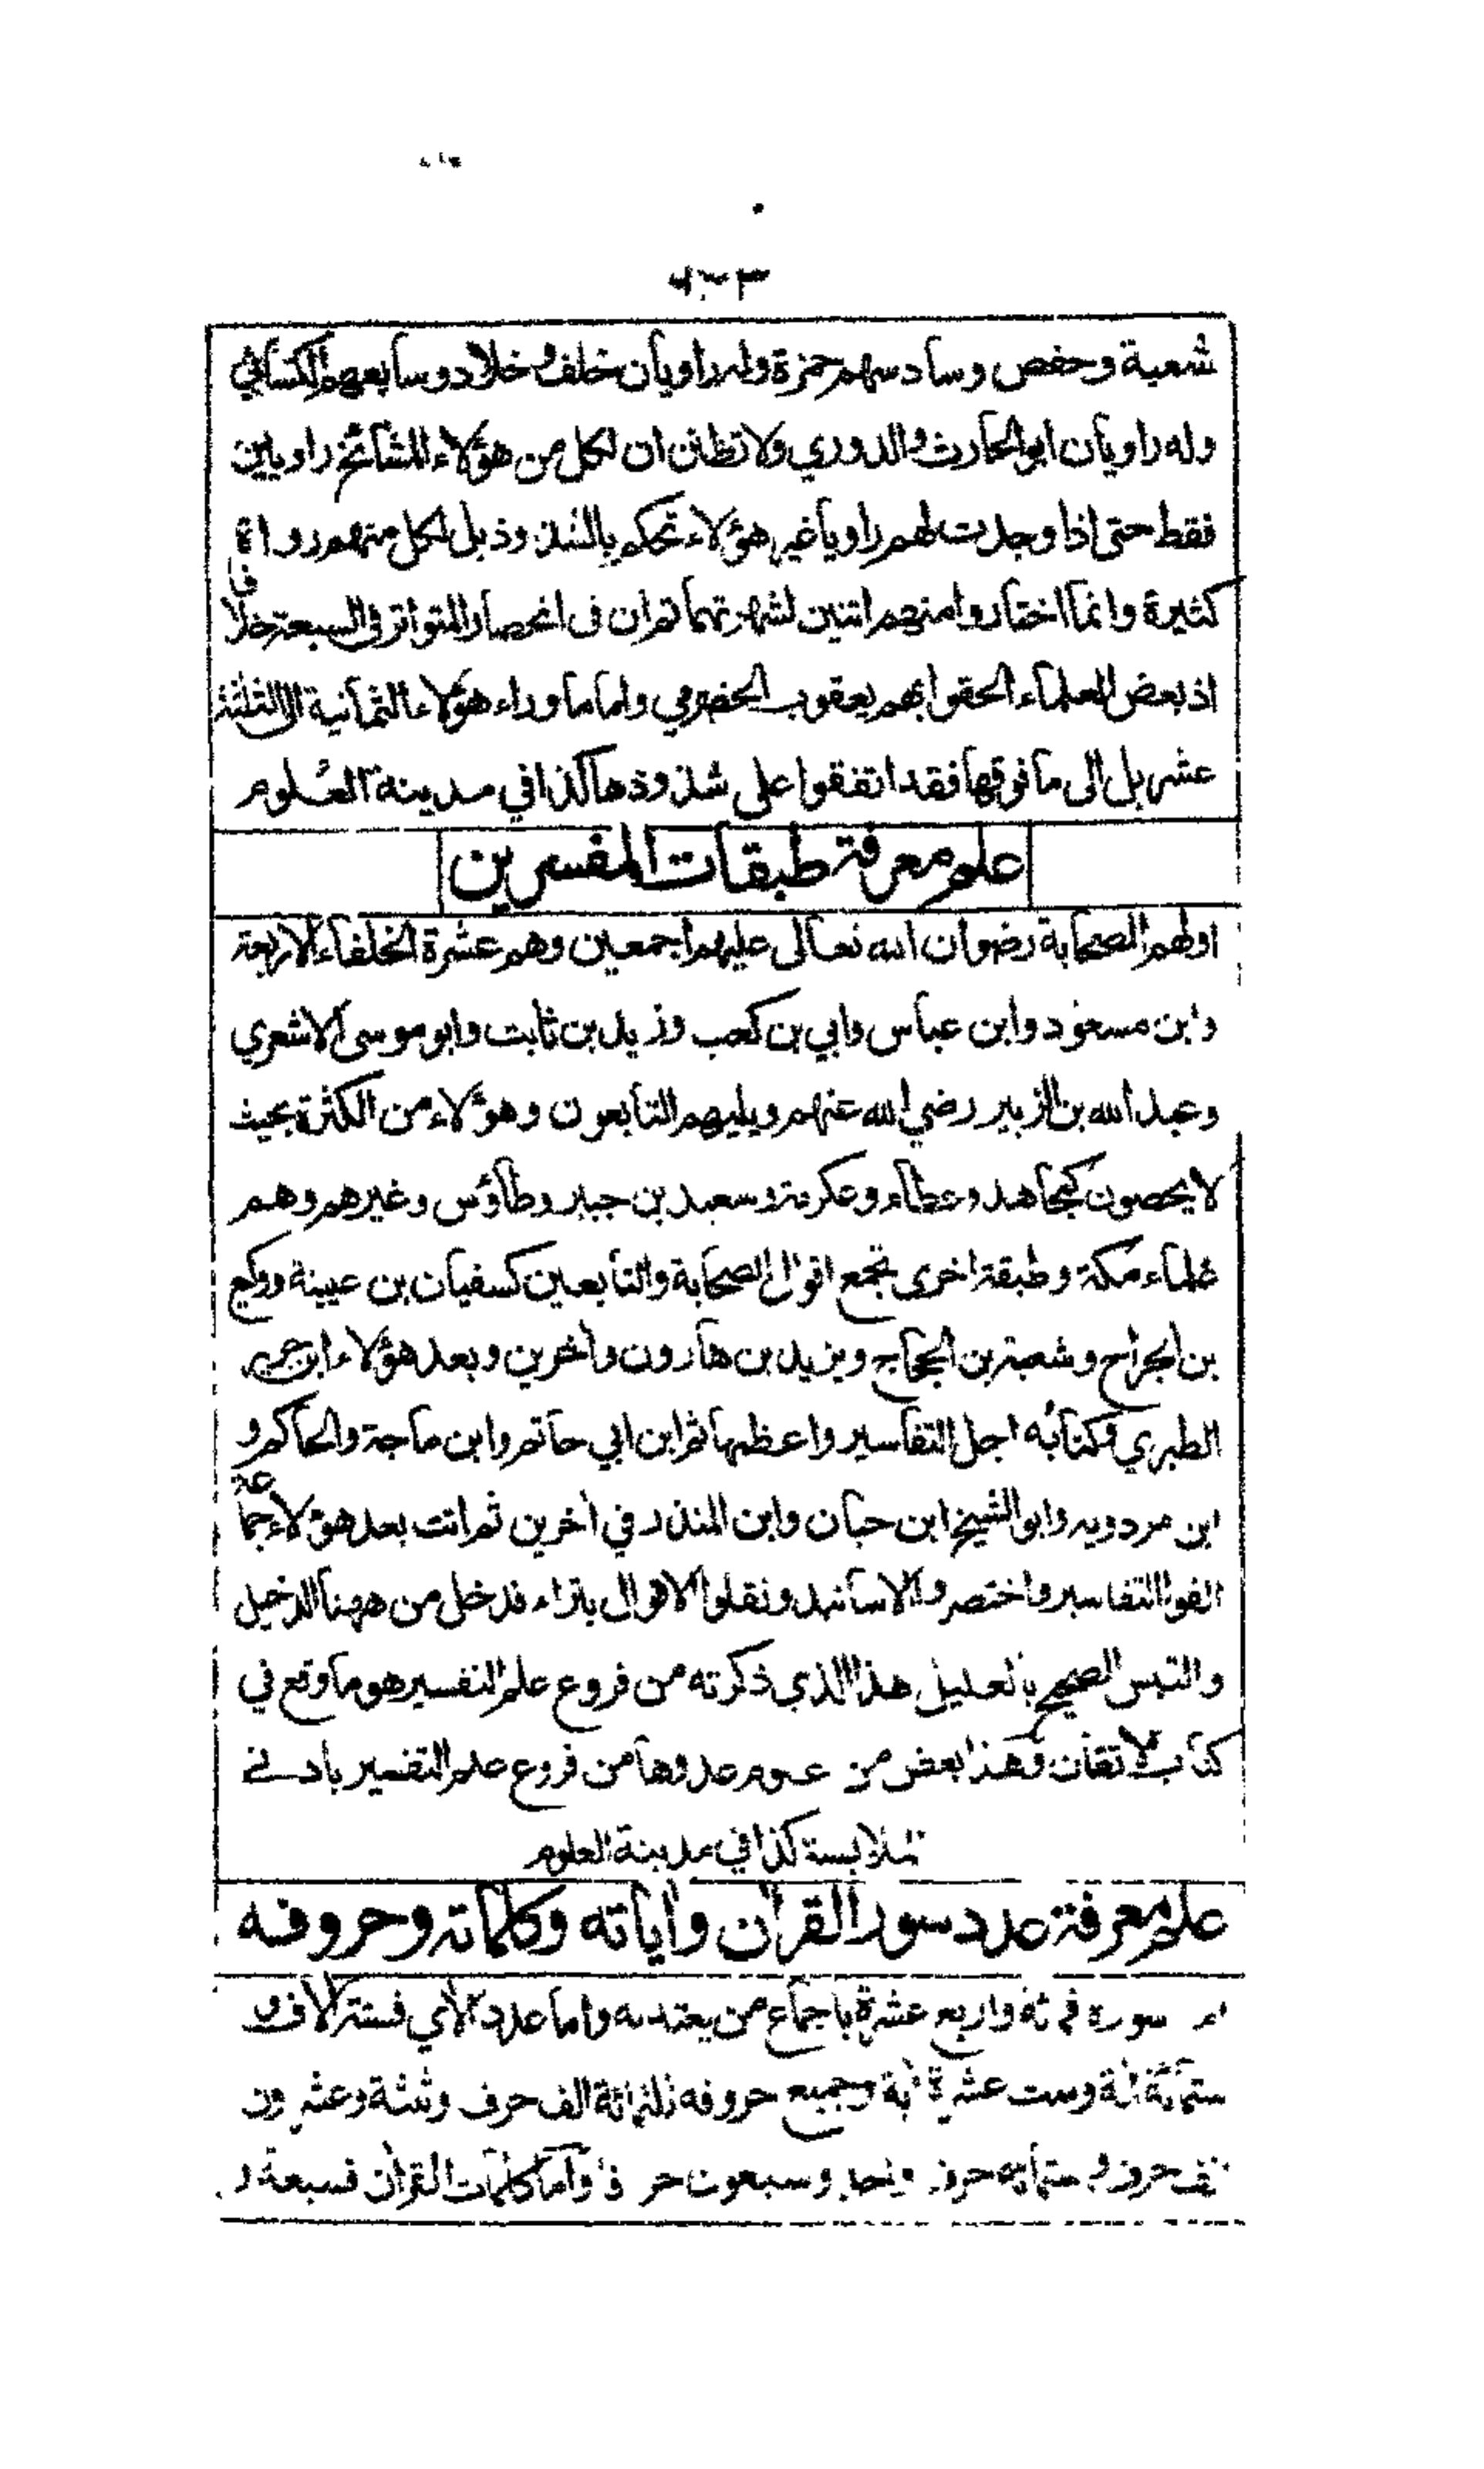 شعبة وحفص وسادسهم حمزة وله راويان خلف وخلاد وسابعهم الكسائي
وله راويان ابو الحارث والدوري ولا تظنن ان لكل من هؤلاء المشائخ راويين
فقط حتى اذا وجدت لهم راويا غير هؤلاء تحكم بالشذوذ بل لكل منهم رواة
كثيرة وانما اختاروا منهم اثنين لشهرتهما ثم ان في انحصار المتواتر في السبعة خلافا
اذ بعض العلماء الحقوا بهم يعقوب الحضرمي واما ما وراء هؤلاء الثمانية الى الثلثة
عشر بل الى ما فوقها فقد اتفقوا على شذوذها كذا في مدينة العلوم
علم معرفة طبقات المفسرين
اولهم الصحابة رضوان الله تعالى عليهم اجمعين وهم عشرة الخلفاء الاربعة
وابن مسعود وابن عباس وابي بن كعب وزيد بن ثابت وابو موسى الاشعري
وعبد الله بن الزبير رضي الله عنهم ويليهم التابعون وهؤلاء من الكثرة بحيث
لا يحصون كمجاهد وعطاء وعكرمة وسعيد بن جبير وطاؤس وغيرهم وهم
علماء مكة وطبقة اخرى تجمع اقوال الصحابة والتابعين كسفيان بن عيينة ووكيع
بن الجراح وشعبة بن الحجاج ويزيد بن هارون وآخرين وبعد هؤلاء ابن جرير
الطبري وكتابه اجل التفاسير واعظمها ثم ابن ابي حاتم وابن ماجة والحاكم و
ابن مردويه وابو الشيخ ابن حبان وابن المنذر في آخرين ثم انت بعد هؤلاء جماعة
الفوا التفاسير واختصروا الاسانيد ونقلوا الاقوال بتراء فدخل من ههنا الدخيل
والتبس الصحيح بالعليل هذا الذي ذكرته من فروع علم التفسير هو ما وقع في
كتاب الاتقان وهذا بعض من علوم عدوها من فروع علم التفسير بادنى
ملابسة كذا في مدينة العلوم
علم معرفة عدد سور القرآن وآياته وكلماته وحروفه
سورة فمائة واربع عشرة باجماع من يعتد به واما عدد الآي فستة آلاف و
ستمائة آية وست عشرة آية وجميع حروفه ثلثمائة الف حرف وثلثة وعشرون
الف حرف وستمائة حرف واحد وسبعون حرفا واما كلمات القرآن فسبعة و